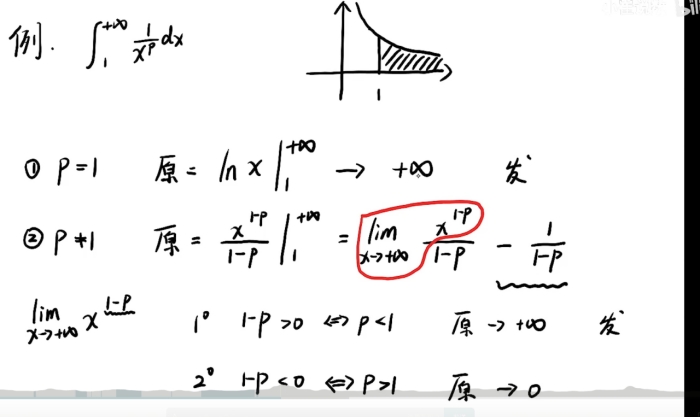 例. ∫₁^{+∞} 1/x^p dx
1
① p=1 原 = ln x |₁^{+∞} → +∞ 发
② p≠1 原 = x^{1-p}/(1-p) |₁^{+∞} = lim_{x→+∞} x^{1-p}/(1-p) - 1/(1-p)
lim_{x→+∞} x^{1-p} 1° 1-p>0 ⇔ p<1 原 → +∞ 发
2° 1-p<0 ⇔ p>1 原 → 0